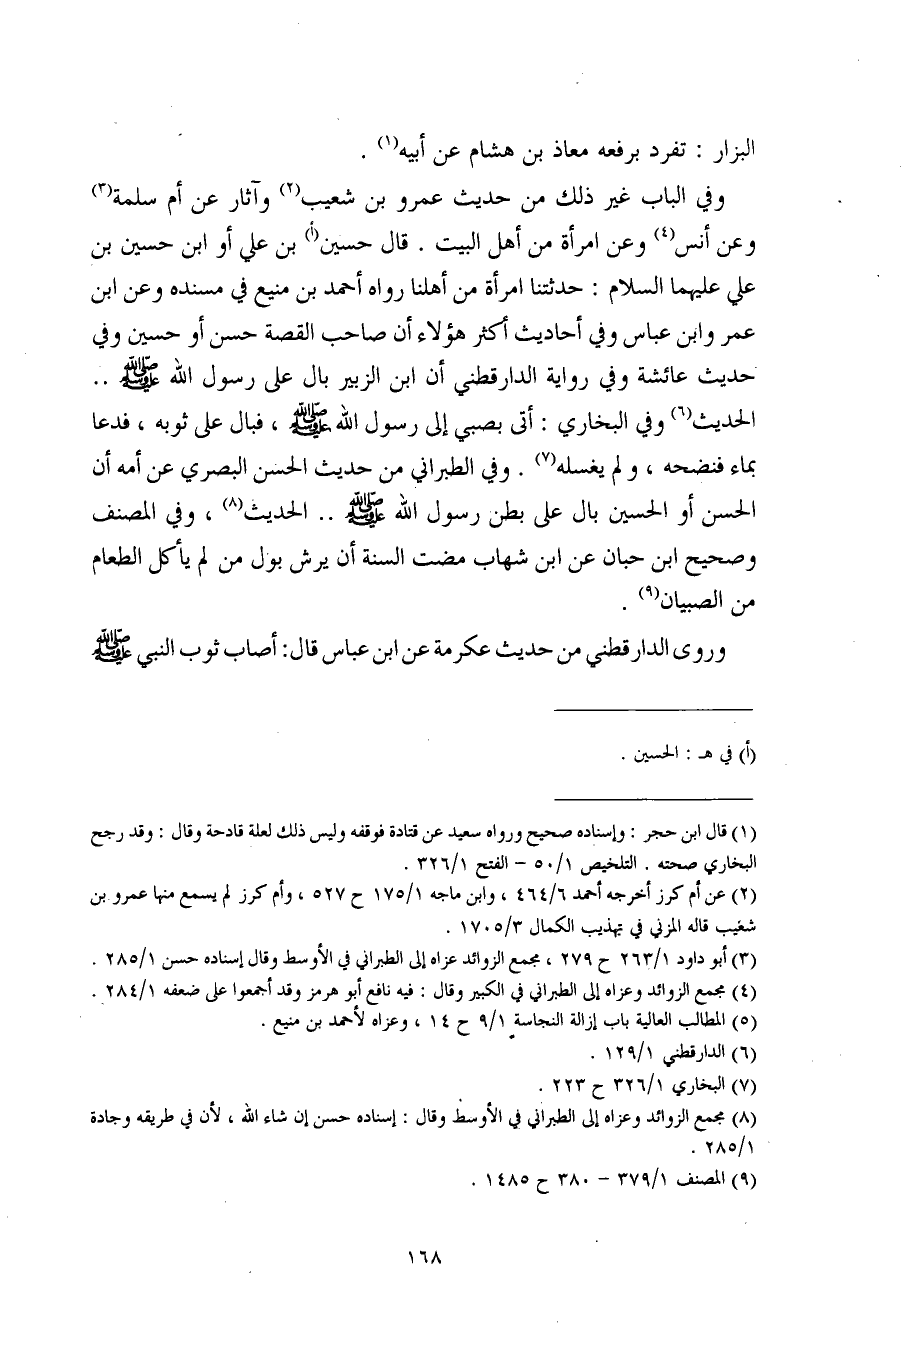 البزار : تفرد برفعه معاذ بن هشام عن أبيه(١) .
وفي الباب غير ذلك من حديث عمرو بن شعيب(٢) وآثار عن أم سلمة(٣)
وعن أنس(٤) وعن امرأة من أهل البيت . قال حسين(أ) بن علي أو ابن حسين بن
علي عليهما السلام : حدثتنا امرأة من أهلنا رواه أحمد بن منيع في مسنده وعن ابن
عمر وابن عباس وفي أحاديث أكثر هؤلاء أن صاحب القصة حسن أو حسين وفي
حديث عائشة وفي رواية الدارقطني أن ابن الزبير بال على رسول الله ﷺ ..
الحديث(٦) وفي البخاري : أتى بصبي إلى رسول الله ﷺ ، فبال على ثوبه ، فدعا
بماء فنضحه ، ولم يغسله(٧) . وفي الطبراني من حديث الحسن البصري عن أمه أن
الحسن أو الحسين بال على بطن رسول الله ﷺ .. الحديث(٨) ، وفي المصنف
وصحيح ابن حبان عن ابن شهاب مضت السنة أن يرش بول من لم يأكل الطعام
من الصبيان(٩) .
وروى الدارقطني من حديث عكرمة عن ابن عباس قال: أصاب ثوب النبي ﷺ
(أ) في هـ : الحسين .
(١) قال ابن حجر : وإسناده صحيح ورواه سعيد عن قتادة فوقفه وليس ذلك لعلة قادحة وقال : وقد رجح
البخاري صحته . التلخيص ٥٠/١ – الفتح ٣٢٦/١ .
(٢) عن أم كرز أخرجه أحمد ٤٦٤/٦ ، وابن ماجه ١٧٥/١ ح ٥٢٧ ، وأم كرز لم يسمع منها عمرو بن
شعيب قاله المزني في تهذيب الكمال ١٧٠٥/٣ .
(٣) أبو داود ٢٦٣/١ ح ٢٧٩ ، مجمع الزوائد عزاه إلى الطبراني في الأوسط وقال إسناده حسن ٢٨٥/١ .
(٤) مجمع الزوائد وعزاه إلى الطبراني في الكبير وقال : فيه نافع أبو هرمز وقد أجمعوا على ضعفه ٢٨٤/١ .
(٥) المطالب العالية باب إزالة النجاسة ٩/١ ح ١٤ ، وعزاه لأحمد بن منيع .
(٦) الدارقطني ١٢٩/١ .
(٧) البخاري ٣٢٦/١ ح ٢٢٣ .
(٨) مجمع الزوائد وعزاه إلى الطبراني في الأوسط وقال : إسناده حسن إن شاء الله ، لأن في طريقه وجادة
٢٨٥/١ .
(٩) المصنف ٣٧٩/١ – ٣٨٠ ح ١٤٨٥ .
١٦٨